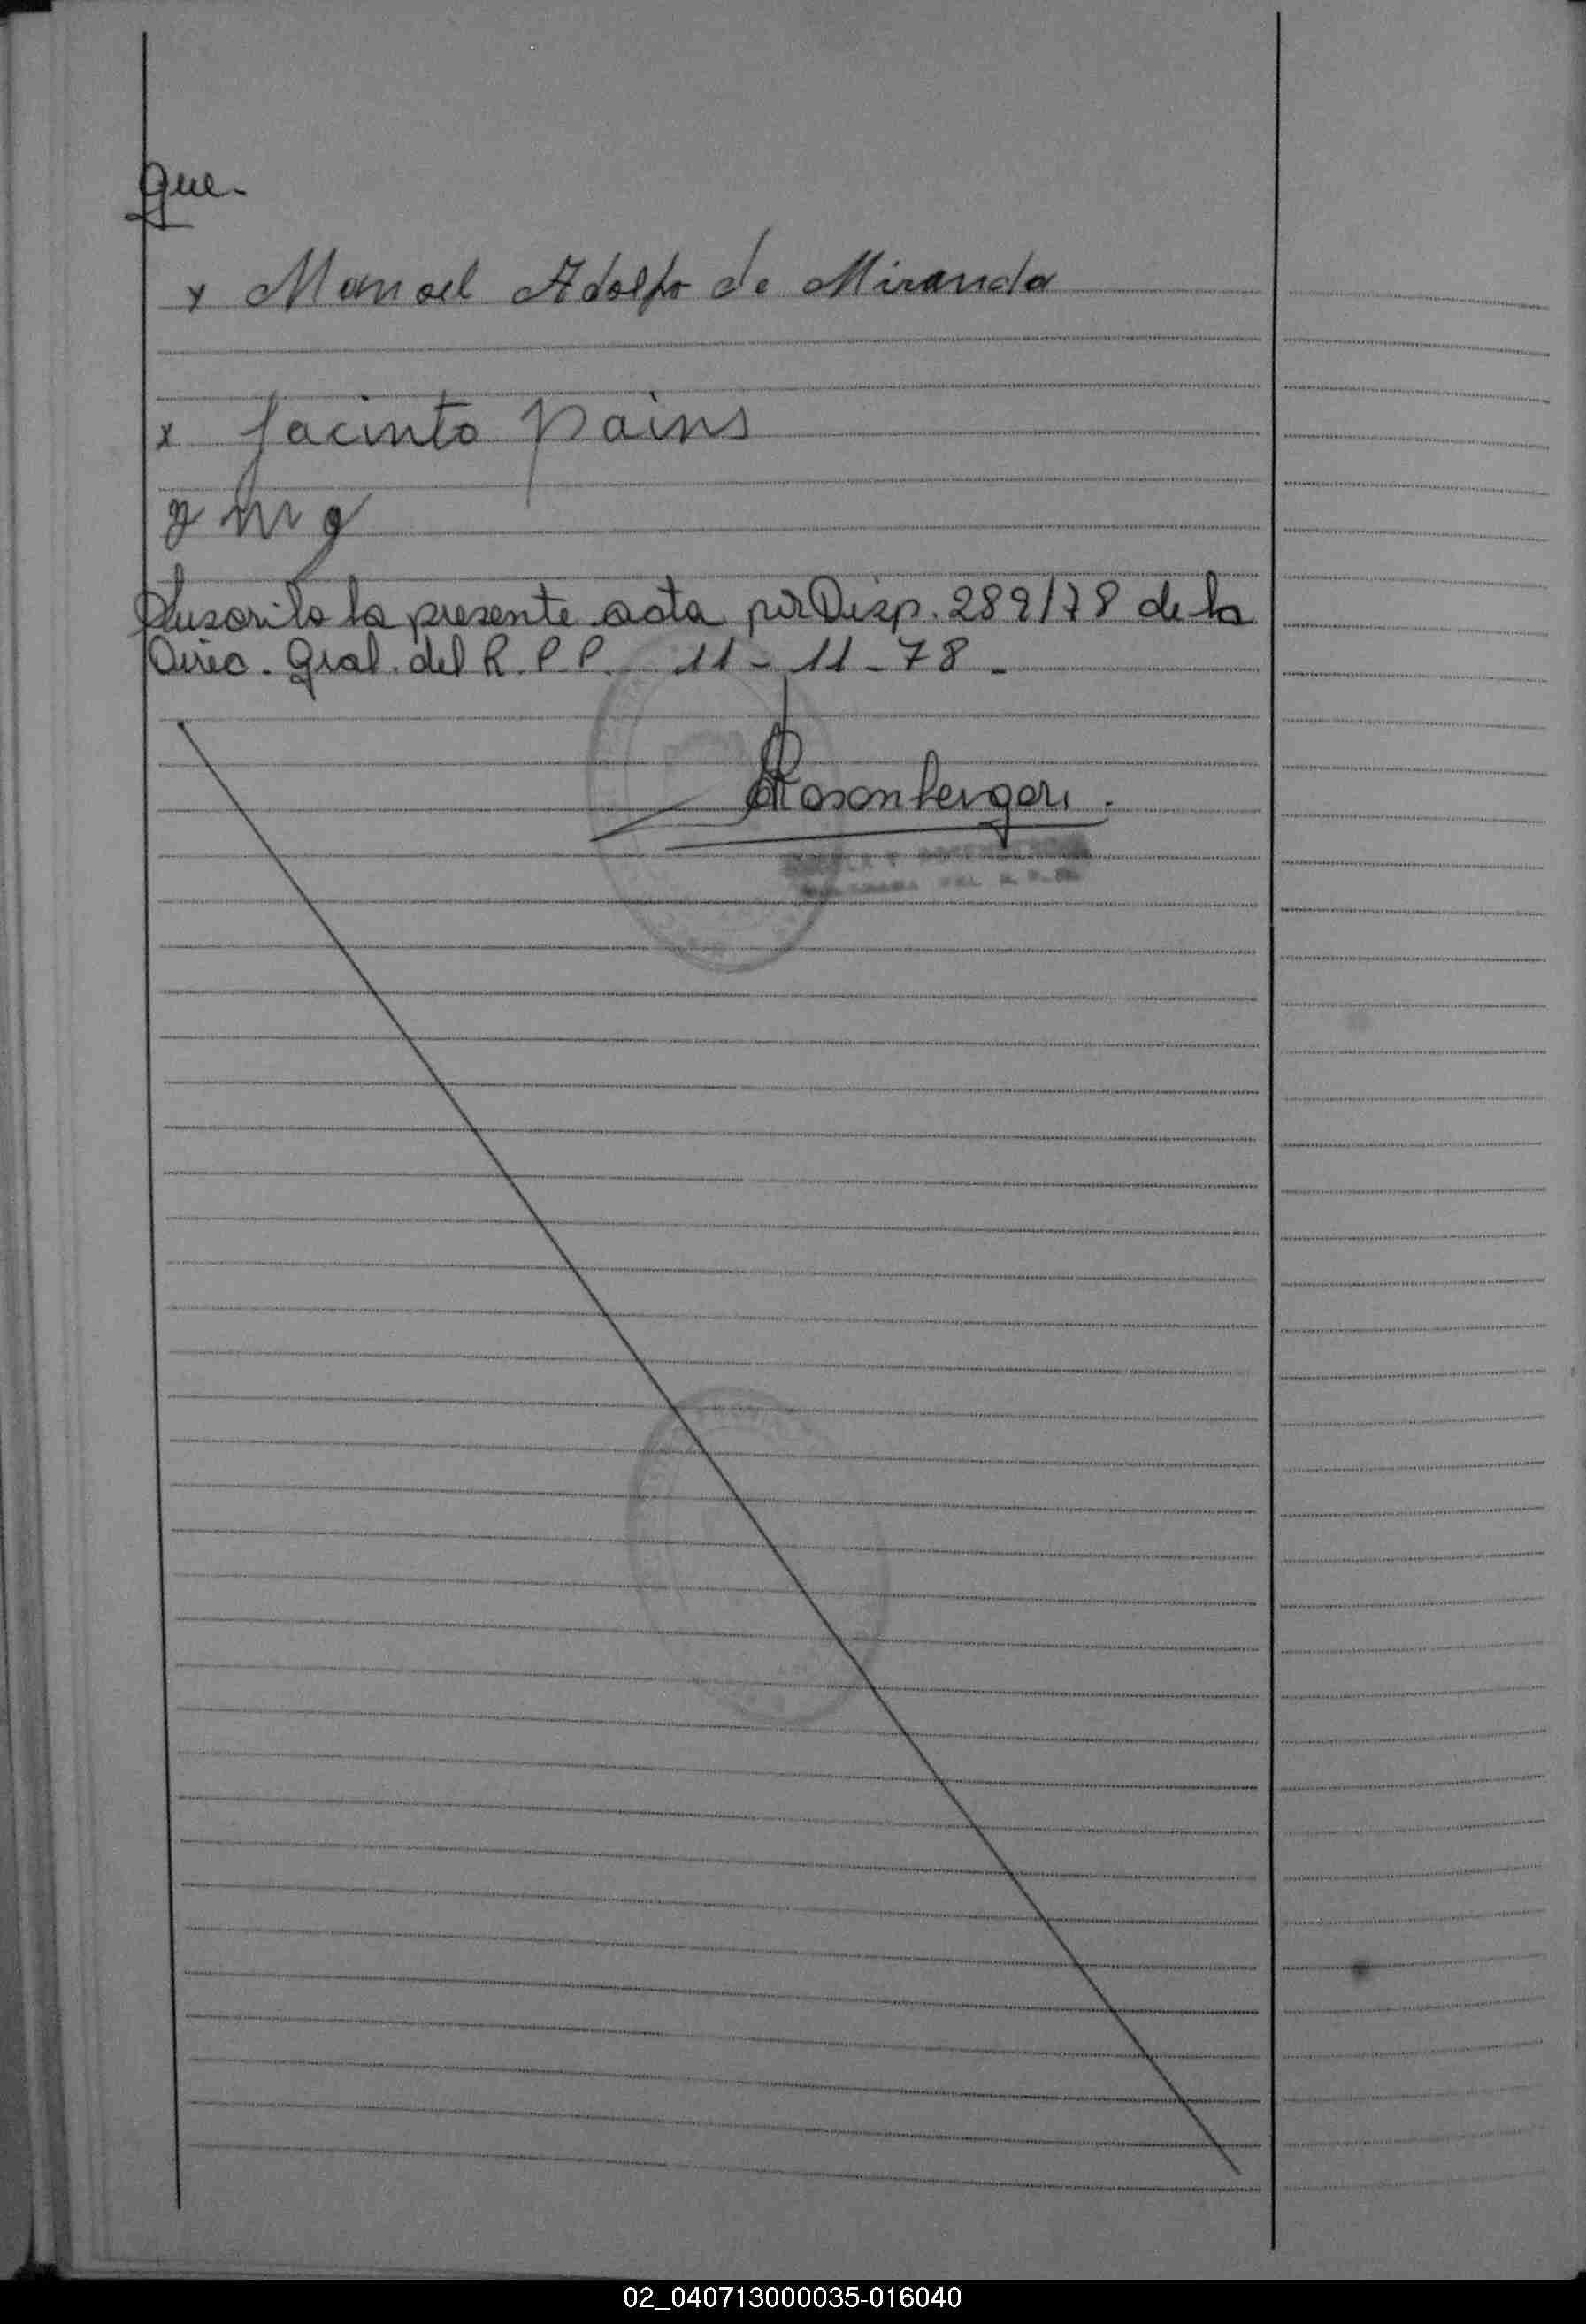 que.
x Manoel Adolfo de Miranda
x Jacinto Pains
Suscrito la presente acta por Disp. 289/78 de la
Direc. Gral. del R. P. P. 11-11-78.
DEL R. P.
02_040713000035-016040